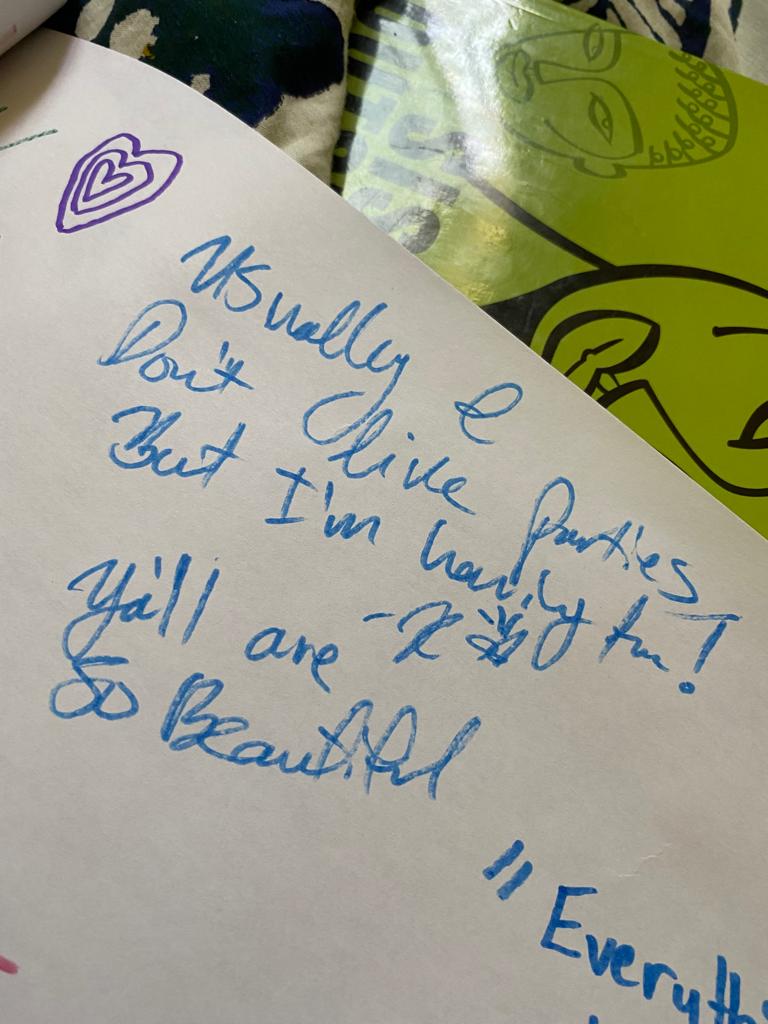 Usually I
Don't like Parties
But I'm having fun!
Ya'll are
So Beautiful
"Everythi